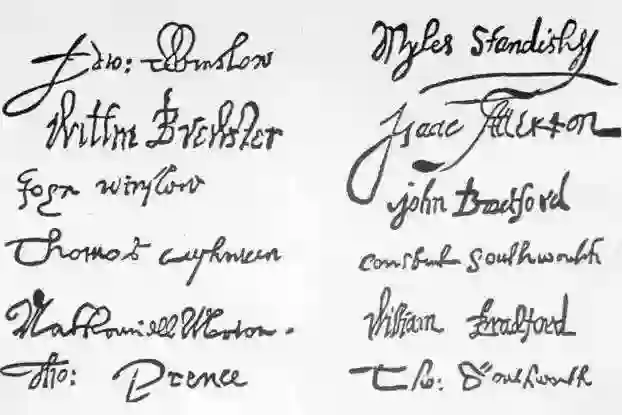 Edw: Winslow
Willm Brewster
John winslow
Thomas Cushman
Nathaniell Morton.
Tho: Prence
Myles Standish
Isaac Allerton
john Bradford
Constant Southworth
William Bradford
Tho: Southworth